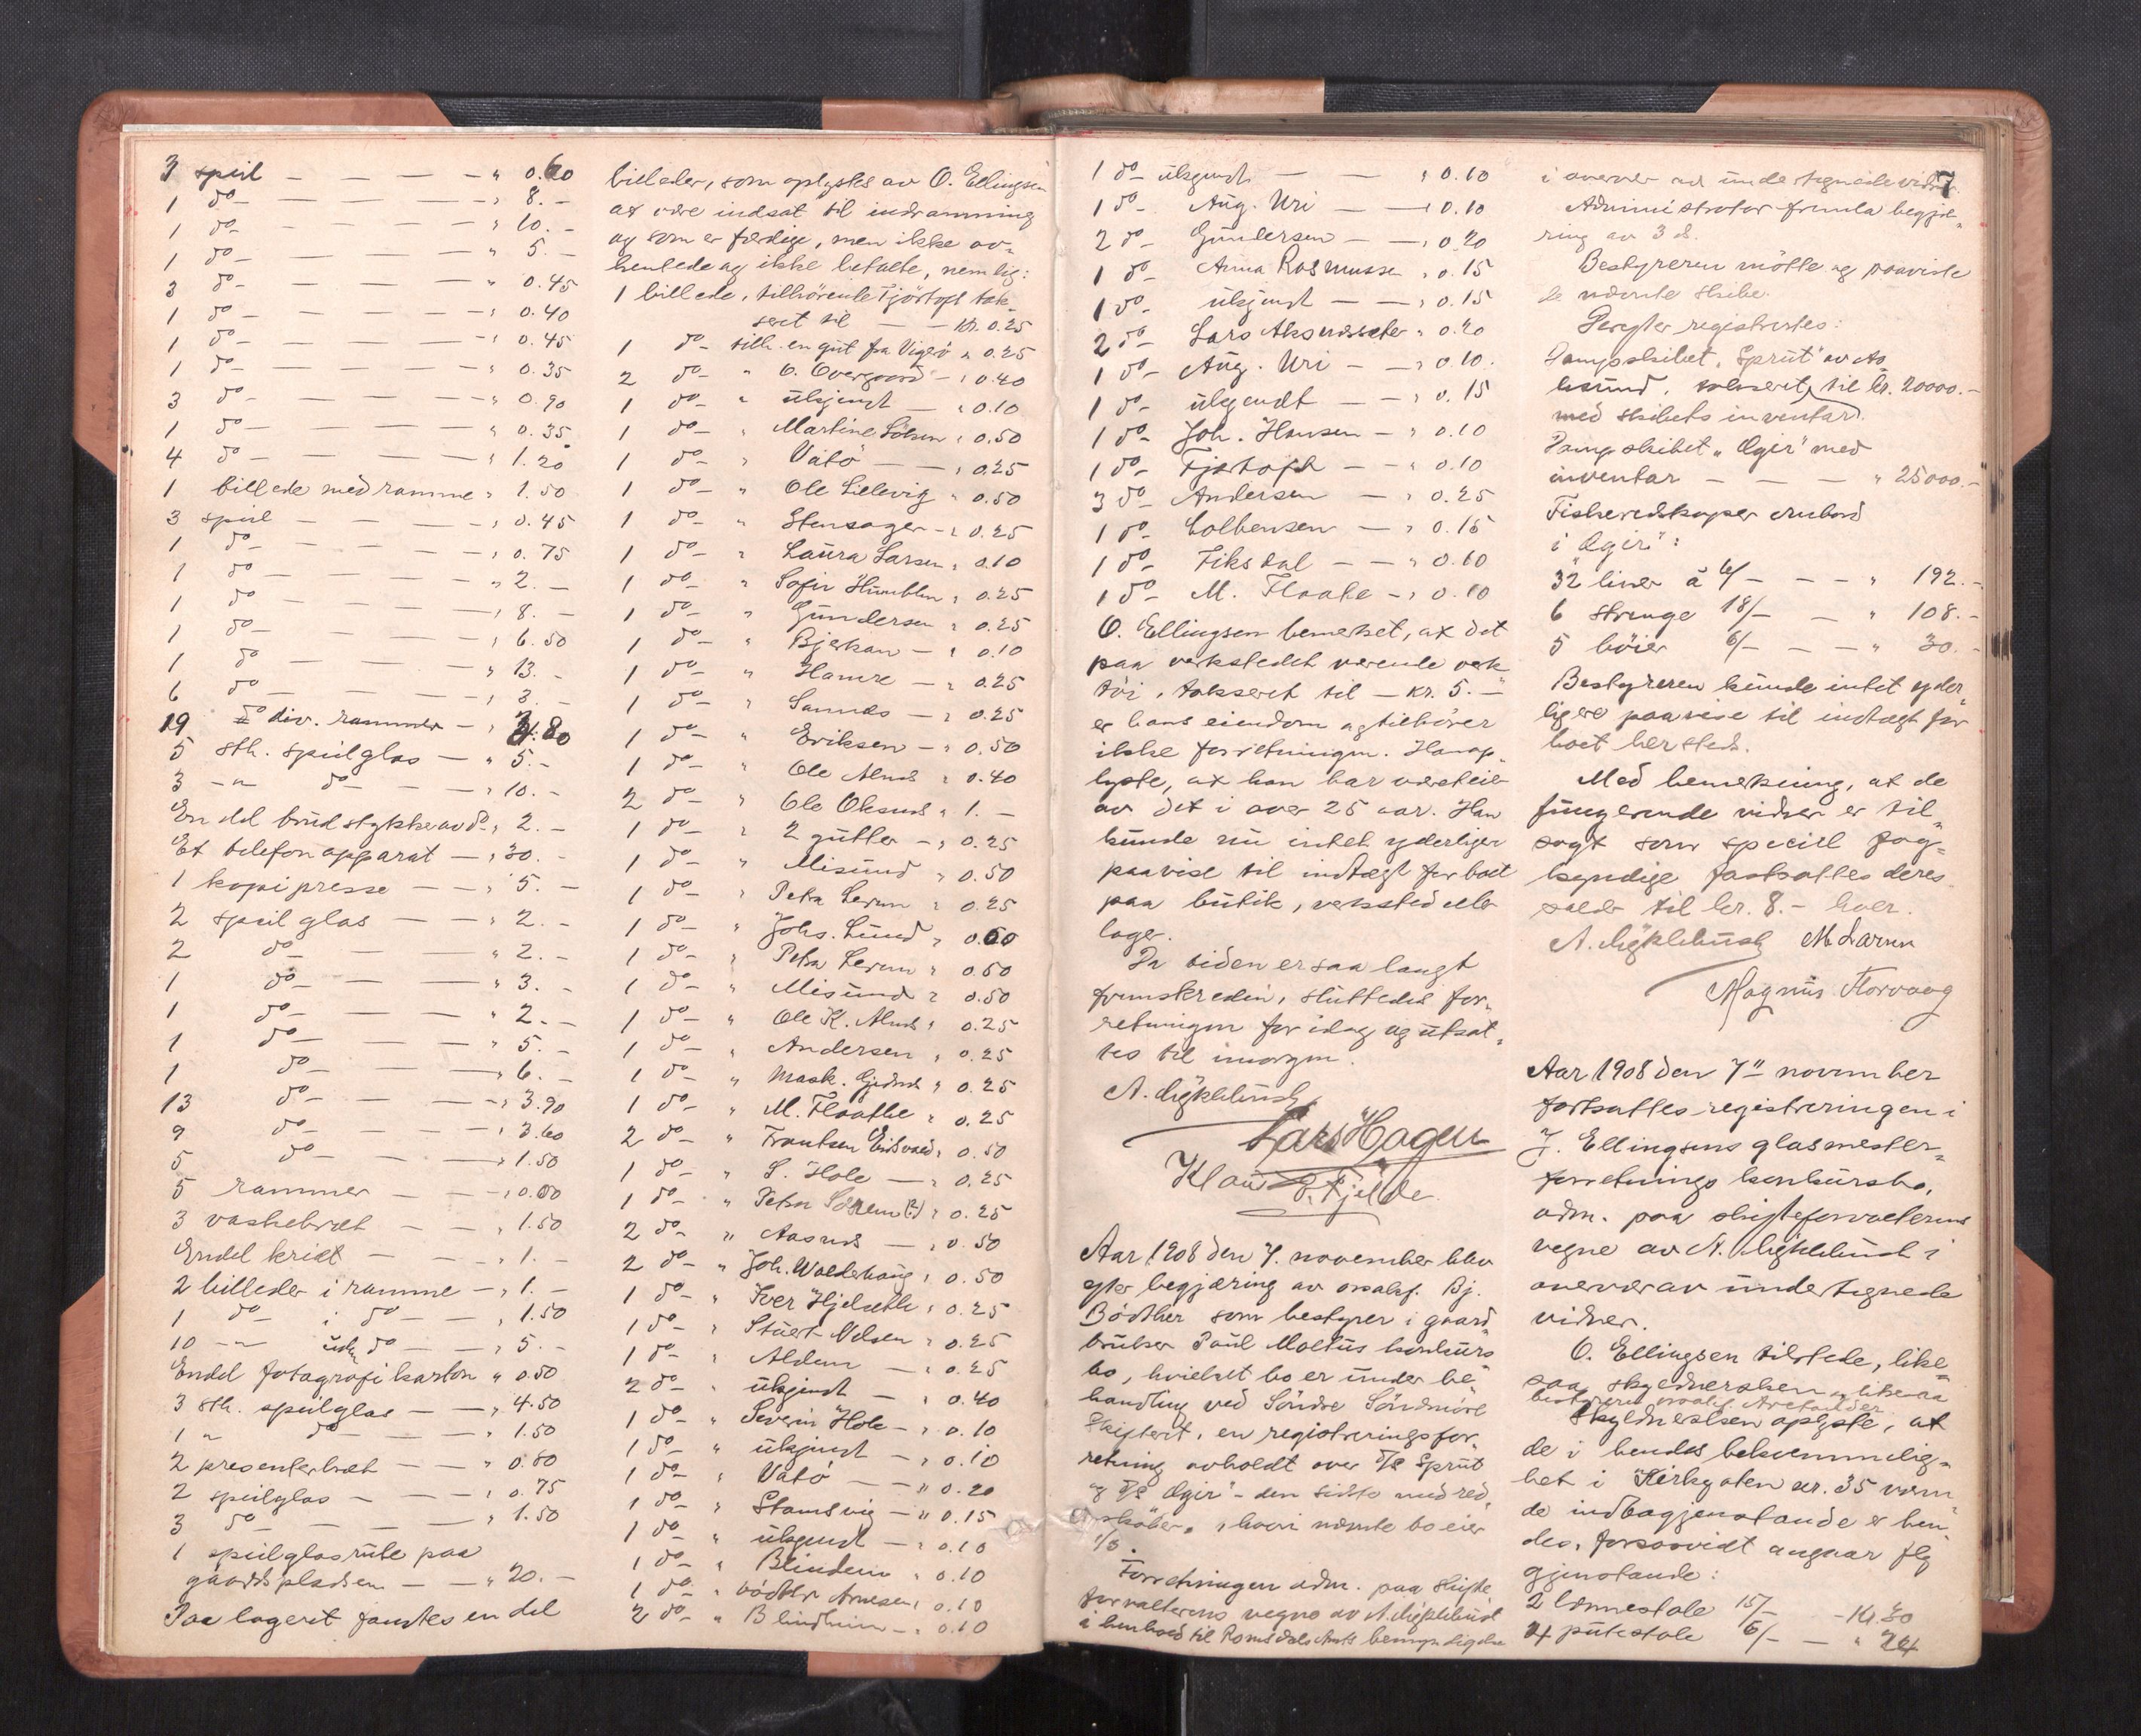 3 speil — — — — " 0.60
1 do — — — — " 8.-
1 do — — — — " 10.-
1 do — — — — " 5.-
3 do — — — — " 0.45
1 do — — — — " 0.40
1 do — — — — " 0.45
1 do — — — — " 0.35
3 do — — — — " 0.90
1 do — — — — " 0.35
4 do — — — — " 1.20
1 billede med ramme " 1.50
3 speil — — — — " 0.45
1 do — — — — " 0.75
1 do — — — — " 2.-
1 do — — — — " 8.-
1 do — — — — " 6.50
1 do — — — — " 13.-
6 do — — — — " 3.-
19 div. rammer — "
5 stk. speilglas — " 5.-
3 -"- do — — " 10.-
En del brudstykker av do " 2.-
Et telefonapparat — " 30.-
1 kopipresse — — " 5.-
2 speilglas — — " 2.-
2 do — — — " 2.-
1 do — — — " 3.-
1 do — — — " 2.-
1 do — — — " 5.-
1 do — — — " 6.-
13 do — — — " 3.90
9 do — — — " 3.60
5 do — — — " 1.50
5 rammer — — "
3 vaskebræt — — " 1.50
Endel kridt — — " 1.-
2 billeder i ramme — " 1.-
1 do i do — — " 1.50
10 -"- uden do — — " 5.-
Endel fotografikarton " 0.50
3 stk. speilglas — — " 4.50
1 " do — — " 1.50
2 presenterbræt — — " 0.80
2 speilglas — — — " 0.75
3 do — — — " 1.50
1 speilglasrute paa
gaardspladsen — — " 20.-
Paa lageret fandtes en del
billeder, som oplystes av O. Ellingsen
at være indsat til indramming
og som er færdige, men ikke av-
hentede og ikke betalte, nemlig:
1 billede, tilhörende Fjörtoft tak-
seret til — — kr. 0.25
1 do tilh. en gut fra Vigrö " 0.25
2 do " O. Overgaard — " 0.40
1 do " ukjendt — " 0.10
1 do " Martine " 0.50
1 do " Vatö — — " 0.25
1 do " Ole Lillevig " 0.50
1 do " Stensager — " 0.25
1 do " Laura Larsen " 0.10
1 do " Sofie " 0.25
1 do " Gundersen " 0.25
1 do " Bjerkan — " 0.10
1 do " Hamre — " 0.25
1 do " — " 0.25
1 do " Eriksen — " 0.50
1 do " Ole Alnes " 0.40
2 do " Ole " 1.-
1 do " 2 gutter — " 0.25
1 do " Misund " 0.50
1 do " Petra " 0.25
1 do " Johs. Lund "
1 do " Petra " 0.50
1 do " Misund " 0.50
1 do " Ole K. Alnes " 0.25
1 do " Andersen " 0.25
1 do " Mask. " 0.25
1 do " M. Flaathe " 0.25
2 do " Frantsen Eidsvaag " 0.50
1 do " S. Hole — " 0.25
1 do " Petra (?) " 0.25
2 do " — " 0.50
2 do " Joh. Waldehaug " 0.50
1 do " Iver Hjelseth " 0.25
1 do " Nilsen " 0.25
1 do " — " 0.25
2 do " ukjendt — " 0.40
1 do " Severin Hole — " 0.10
1 do " ukjendt — " 0.10
1 do " Vatö — " 0.20
1 do " Stamsvig — " 0.15
1 do " ukjendt — " 0.10
1 do " Blindeim " 0.10
1 do " bödker Arnesen " 0.10
2 do " Blindheim — " 0.10
7
1 do ukjendt — — " 0.10
1 do Aug. Uri — " 0.10
2 do Gundersen — — " 0.20
1 do Anna Rasmussen " 0.15
1 do ukjendt — — " 0.15
2 do Lars Aksnesseter " 0.20
1 do Aug. Uri — — " 0.10
1 do ukjendt — — " 0.15
1 do Joh. Hansen — " 0.10
1 do Fjörtoft — — " 0.10
3 do Andersen — " 0.25
1 do Colbensen — " 0.15
1 do Fiksdal — — " 0.60
1 do M. Flaathe — " 0.10
O. Ellingsen bemerket, at det
paa verkstedet værende verk-
töi, takseret til — kr. 5.—
er hans eiendom og tilhörer
ikke forretningen. Han op-
lyste, at han har været eier
av det i over 25 aar. Han
kunde nu intet yderligere
paavise til indtægt for boet
paa butik, verksted eller
lager.
Da tiden er saa langt
fremskreden, sluttedes for-
retningen for idag og utsat-
tes til imorgen.
A. Myklebust
Lars Hagen
Klaus P. Fjelde
Aar 1908 den 7. november blev
efter begjæring av ovrsakf. Bj.
Bödtker som bestyrer i gaard-
bruker Paul Moltus konkurs-
bo, hvilket bo er under be-
handling ved Söndre Söndmöre
Skifteret, en registreringsfor-
retning avholdt over D/S Sprut
og D/S Ægir - den sidste med red-
skaber, hvori nævnte bo eier
1/3.
Forretningen adm. paa skifte-
forvalterens vegne av A. Myklebust
i henhold til Romsdals Amts bemyndigelse
i overvær av undertegnede vidner.
Administrator fremla begjæ-
ring av 3 ds.
Bestyreren mötte og paaviste
de nævnte skibe.
Derefter registrertes:
Dampskibet "Sprut" av Aa-
lesund, takseret til kr. 20000.-
med skibets inventar.
Dampskibet "Ægir" med
inventar — — — " 25000.-
Fiskeredskaper ombord
i "Ægir":
32 liner à 6/- — — " 192.-
6 strenge 18/- — " 108.-
5 böier 6/- — — " 30.-
Bestyreren kunde intet yder-
ligere paavise til indtægt for
boet hersteds.
Med bemerkning, at de
fungerende vidner er til-
sagt som speciell fag-
kyndige fastsattes deres
salær til kr. 8.- hver.
A. Myklebust M. Larsen
Magnus Korvaag
Aar 1908 den 7" november
fortsattes registreringen i
J. Ellingsens glasmester-
forretnings konkursbo,
adm. paa skifteforvalterens
vegne av A. Myklebust i
overvær av undertegnede
vidner.
O. Ellingsen tilstede, like-
saa skyldnersken, likesaa
bestyreren ovrsakf.
Skyldnersken oplyste, at
de i hendes bekvemmelig-
het i Kirkegaten nr. 35 væren-
de indbogjenstande er hen-
des, forsaavidt angaar flg
gjenstande:
2 lænestole 15/- — Kr. 30
4 putestole 6/- — " 24